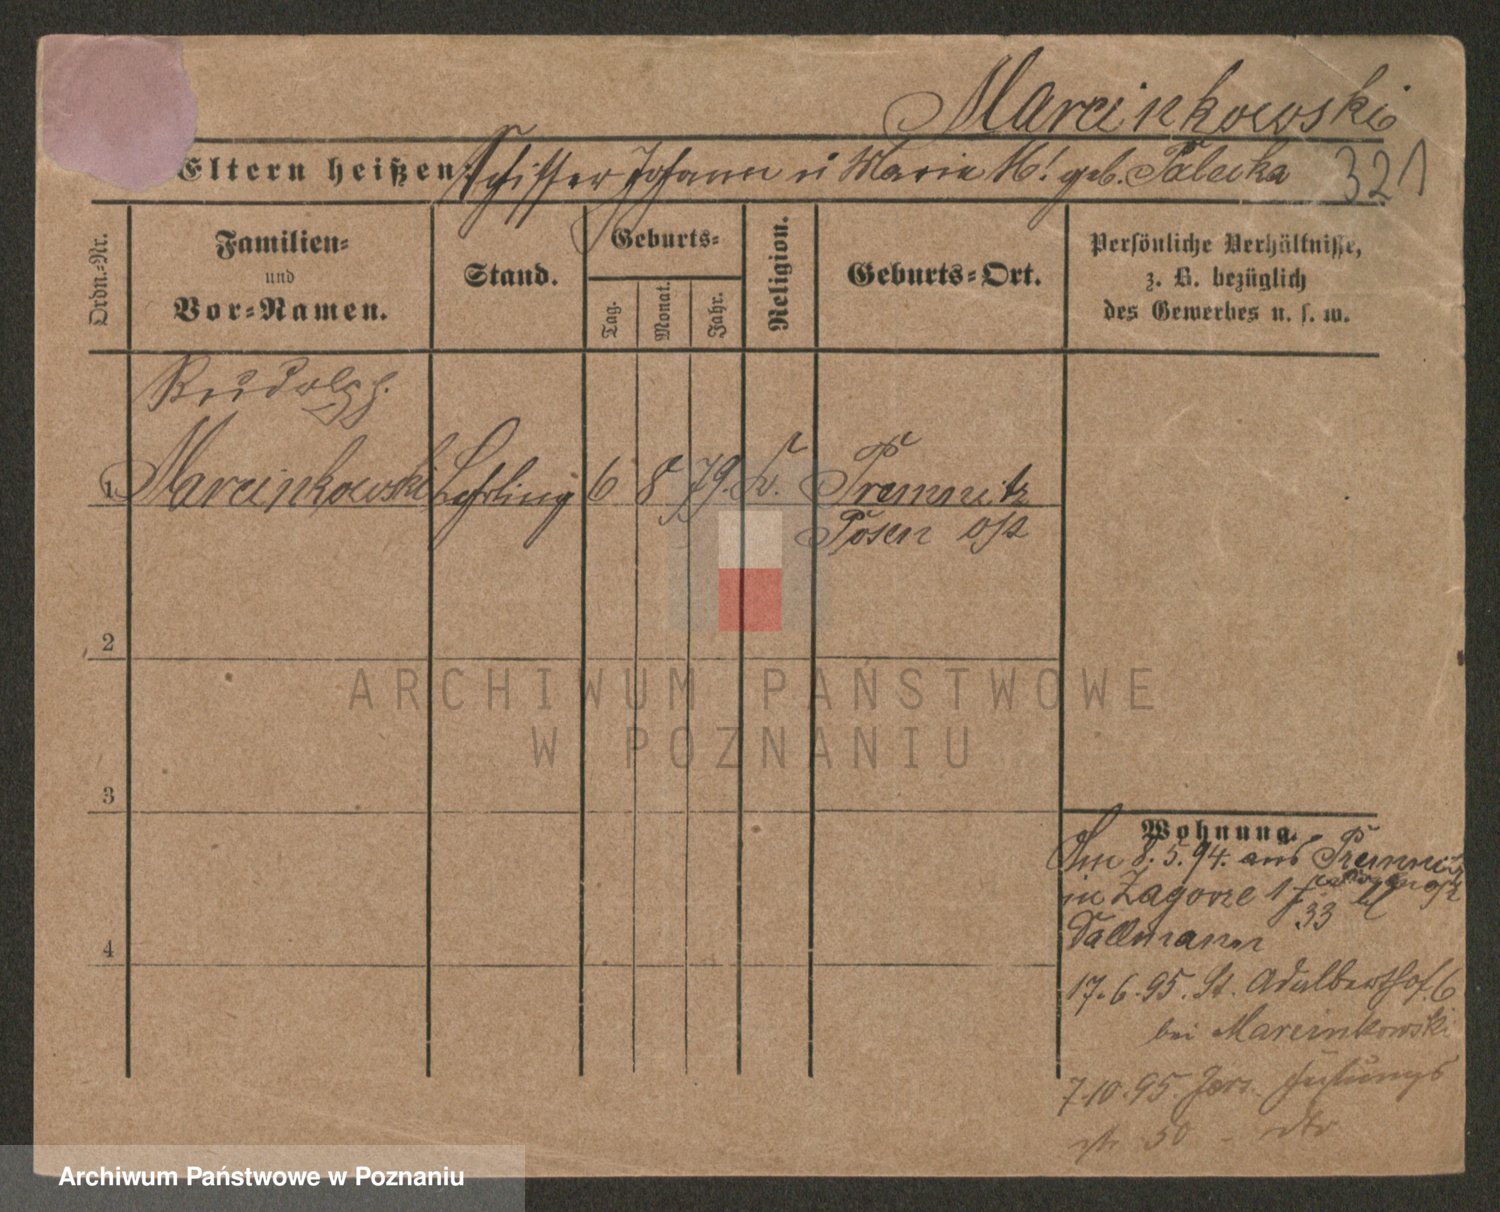 Marcinkowski
Eltern heißen: Schiffer Johann u Marie M! geb. Palecka 321
Ordn.=Nr.
Familien=
und
Vor=Namen.
Stand.
Geburts=
Tag.
Monat.
Jahr.
Religion.
Geburts=Ort.
Persönliche Verhältnisse,
z. B. bezüglich
des Gewerbes u. s. w.
Rudolph.
1 Marcinkowski Lehrling 6 8 79. K. Tremnitz
Posen Ost
2
ARCHIWUM PAŃSTWOWE
W POZNANIU
3
Wohnung.
Am 8.5.94. aus
in Zagorze 1
33
Dallmann
17.6.95. St. Adalberthof. 6
bei Marcinkowski
7.10.95. Jers.
50
4
Archiwum Państwowe w Poznaniu